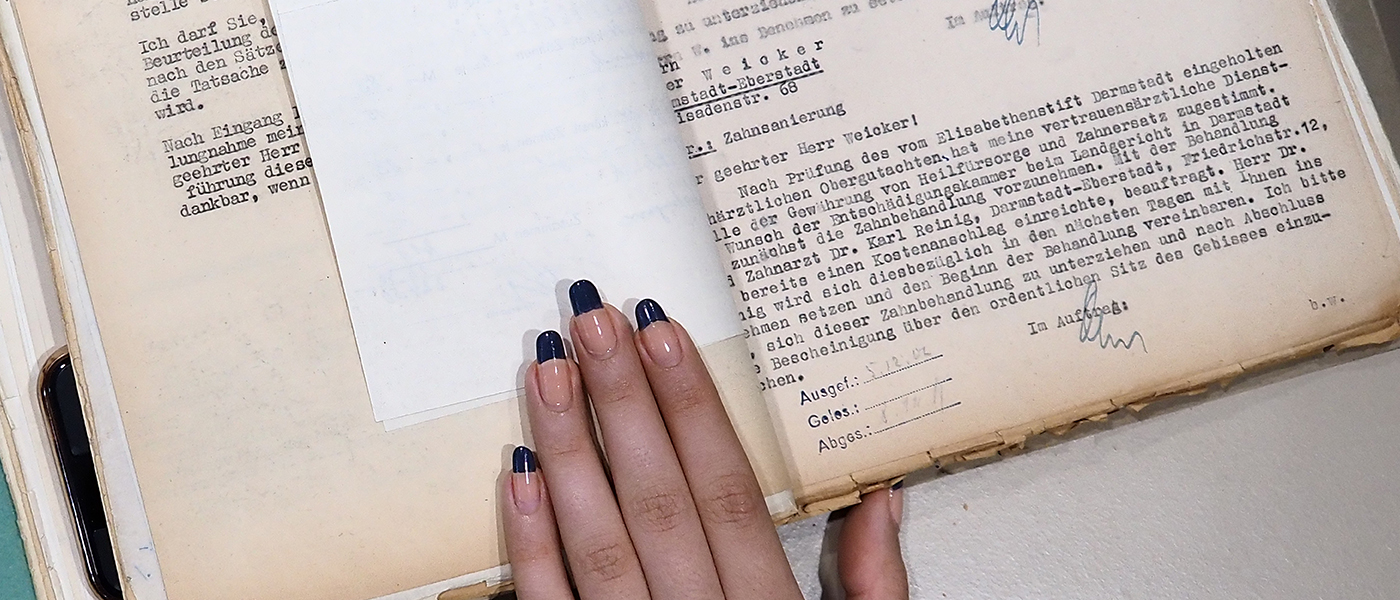 stelle s
Ich darf Sie,
Beurteilung de
nach den Sätze
die Tatsache z
wird.
Nach Eingang
lungnahme mein
geehrter Herr
führung diese
dankbar, wenn
zu unterziehen
W. ins Benehmen zu se
Im
er W e i c k e r
mstadt-Eberstadt
isadenstr. 68
.: Zahnsanierung
r geehrter Herr Weicker!
Nach Prüfung des vom Elisabethenstift Darmstadt eingeholten
härztlichen Obergutachten, hat meine vertrauensärztliche Dienst-
lle der Gewährung von Heilfürsorge und Zahnersatz zugestimmt.
Wunsch der Entschädigungskammer beim Landgericht in Darmstadt
zunächst die Zahnbehandlung vorzunehmen. Mit der Behandlung
Zahnarzt Dr. Karl Reinig, Darmstadt-Eberstadt, Friedrichstr.12,
bereits einen Kostenanschlag einreichte, beauftragt. Herr Dr.
nig wird sich diesbezüglich in den nächsten Tagen mit Ihnen ins
ehmen setzen und den Beginn der Behandlung vereinbaren. Ich bitte
, sich dieser Zahnbehandlung zu unterziehen und nach Abschluss
e Bescheinigung über den ordentlichen Sitz des Gebisses einzu-
chen.
Im Auftrag:
b.w.
Ausgef.:
Geles.:
Abges.: